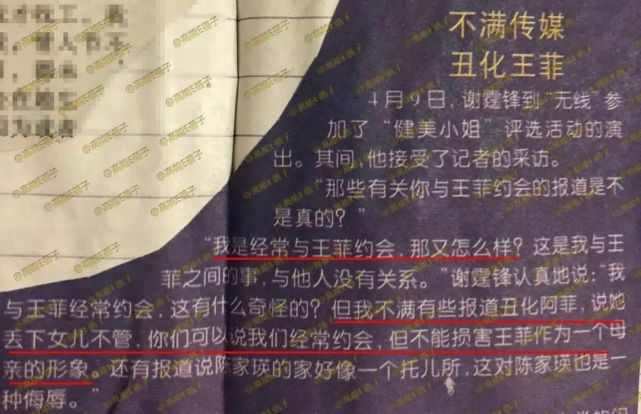 不满传媒
丑化王菲
4月9日,谢霆锋到“无线”参
加了“健美小姐”评选活动的演
出。其间,他接受了记者的采访。
“那些有关你与王菲约会的报道是不
是真的?”
“我是经常与王菲约会,那又怎么样?这是我与王
菲之间的事,与他人没有关系。”谢霆锋认真地说:“我
与王菲经常约会,这有什么奇怪的?但我不满有些报道丑化阿菲,说她
丢下女儿不管,你们可以说我们经常约会,但不能损害王菲作为一个母
亲的形象。还有报道说陈家瑛的家好像一个托儿所,这对陈家瑛也是一
种侮辱。”